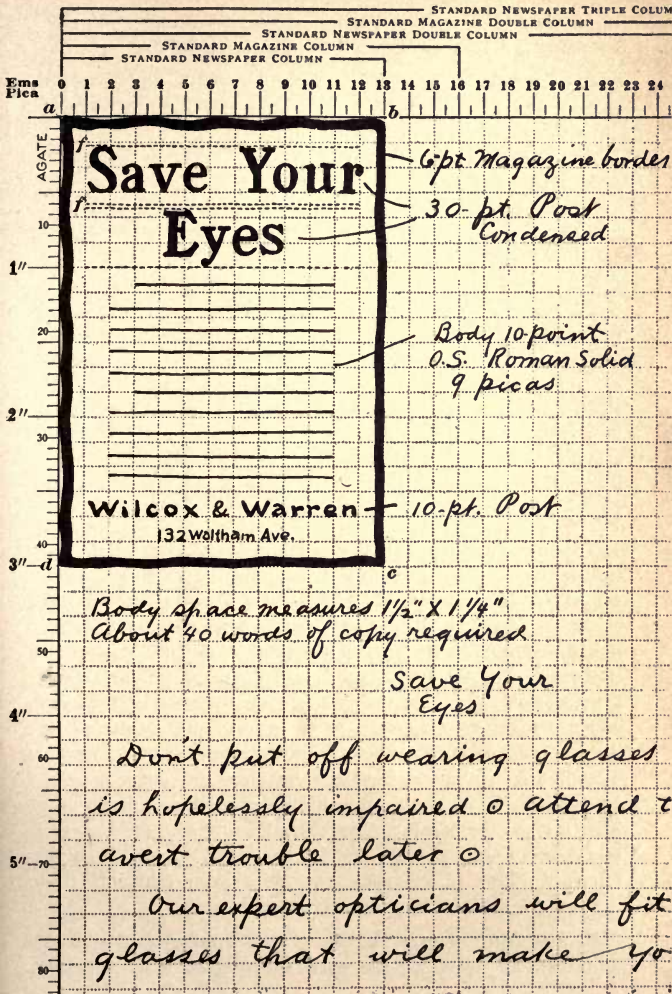 STANDARD NEWSPAPER TRIPLE COLUM
STANDARD MAGAZINE DOUBLE COLUMN
STANDARD NEWSPAPER DOUBLE COLUMN
STANDARD MAGAZINE COLUMN
STANDARD NEWSPAPER COLUMN
Ems Pica 0 1 2 3 4 5 6 7 8 9 10 11 12 13 14 15 16 17 18 19 20 21 22 23 24
a b
AGATE
f
6-pt Magazine border
Save Your
f
30-pt. Post
Condensed
10
Eyes
1"
20
Body 10-point
O.S. Roman Solid
9 picas
2"
30
Wilcox & Warren
10-pt. Post
132 Waltham Ave.
40
3" d
c
Body space measures 1 1/2" X 1 1/4"
About 40 words of copy required
50
Save Your
Eyes
4"
60
Don't put off wearing glasses
is hopelessly impaired ⊙ attend t
avert trouble later ⊙
5" 70
Our expert opticians will fit
glasses that will make yo
80